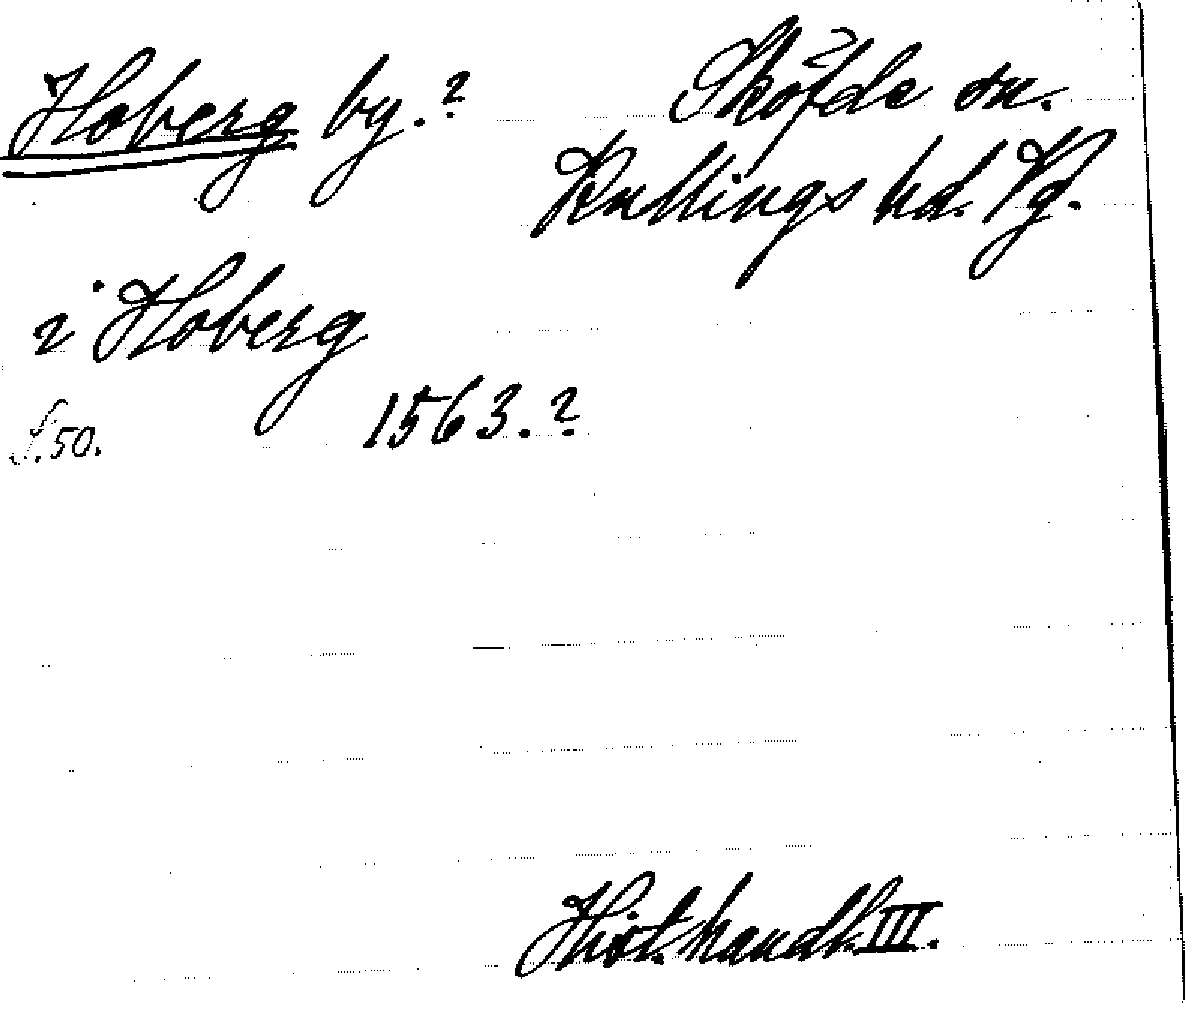 Hoberg by.? Sköfde sn.
Kullings hd. Vg.
i Hoberg
S.50. 1563.?
Hist. handl. III.